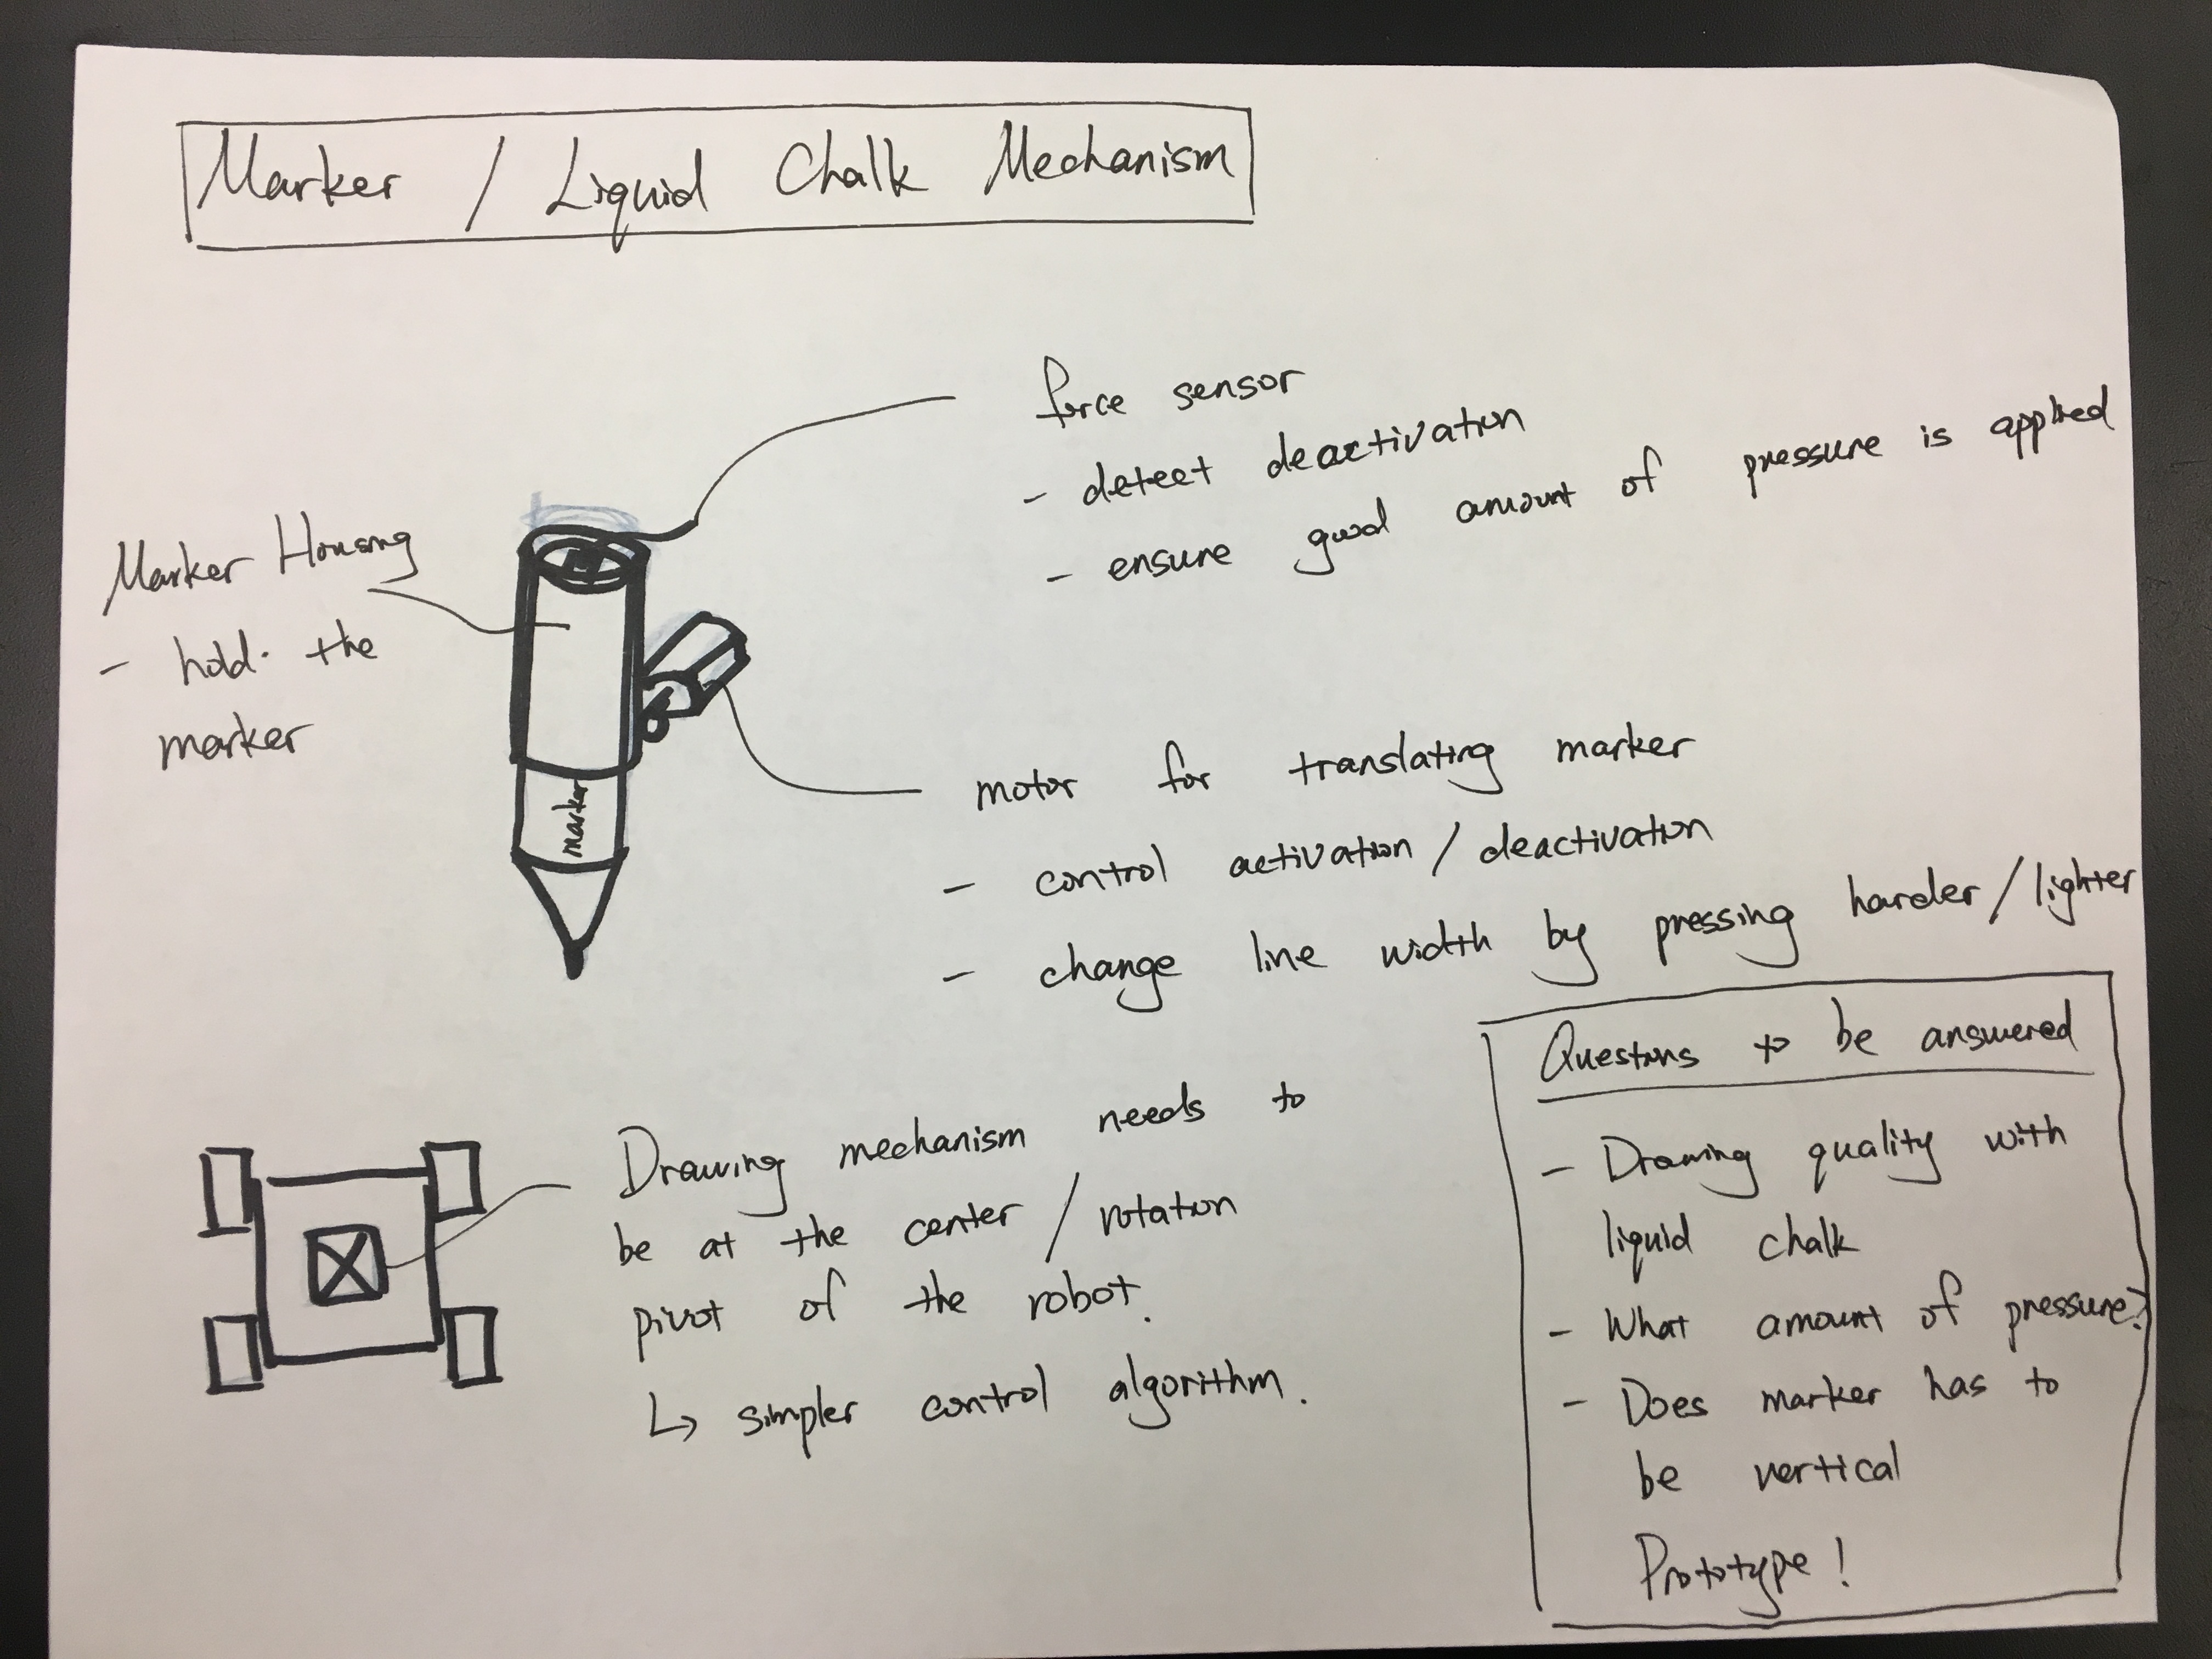 Marker / Liquid Chalk Mechanism
force sensor
- detect deactivation
- ensure good amount of pressure is applied
Marker Housing
- hold the
marker
marker
motor for translating marker
- control activation / deactivation
- change line width by pressing harder / lighter
Drawing mechanism needs to
be at the center / rotation
pivot of the robot.
↳ simpler control algorithm.
Questions to be answered
- Drawing quality with
liquid chalk
- What amount of pressure?
- Does marker has to
be vertical
Prototype!